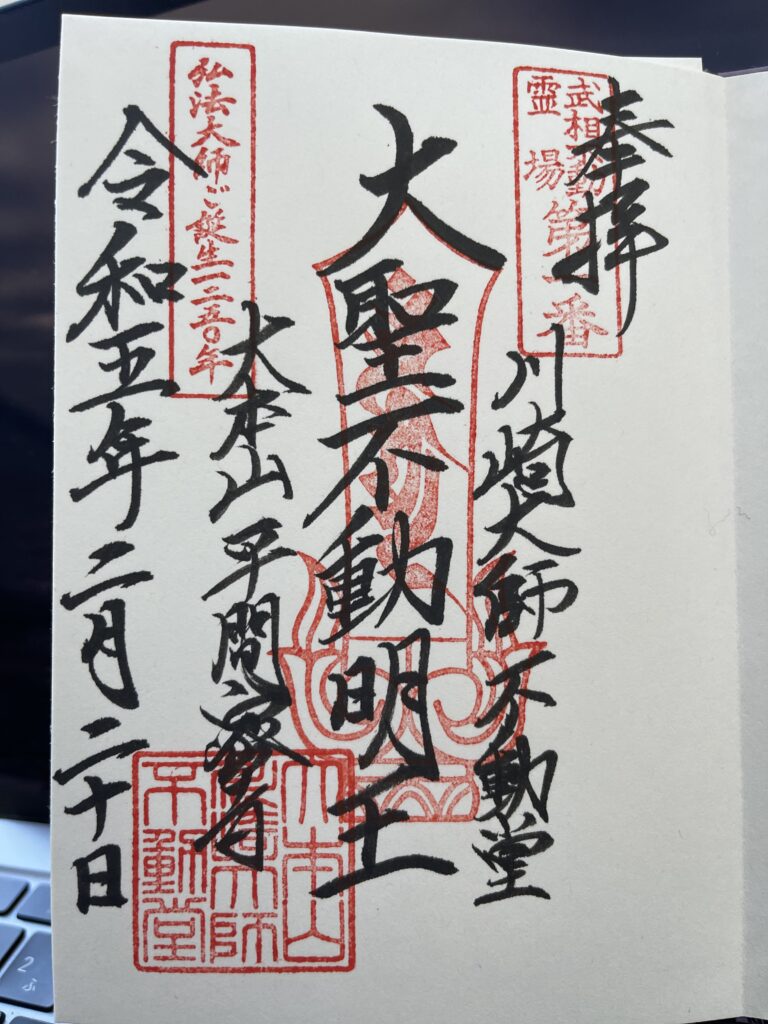 奉拝
武相不動
霊場
第一番
川崎大師不動堂
大聖不動明王
大本山平間寺
弘法大師ご誕生一二五〇年
令和五年二月二十日
大本山
大師
不動堂
2
ふ